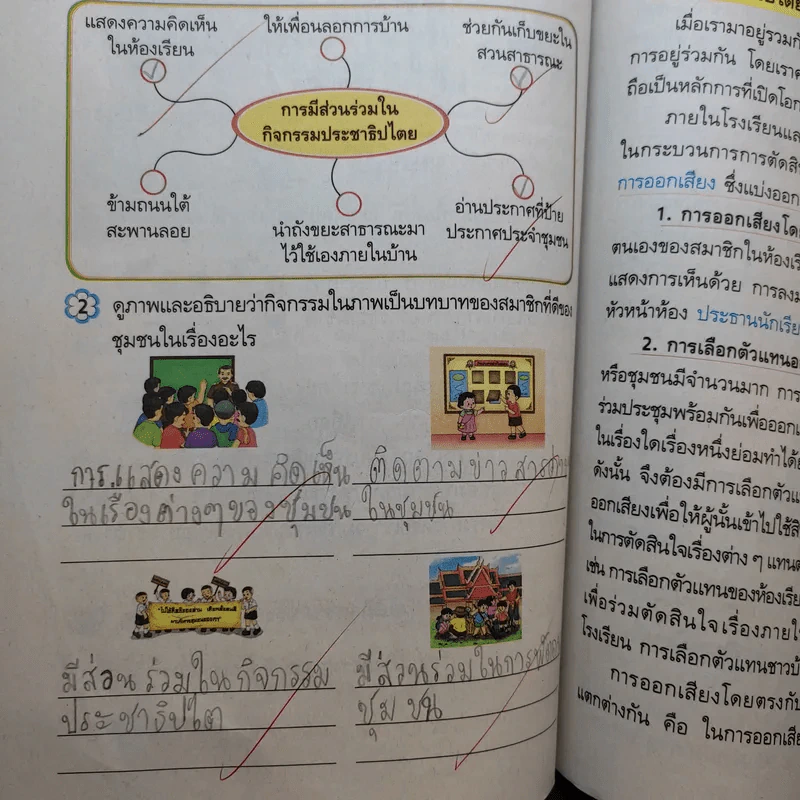 แสดงความคิดเห็น
ในห้องเรียน
ให้เพื่อนลอกการบ้าน
ช่วยกันเก็บขยะใน
สวนสาธารณะ
การมีส่วนร่วมใน
กิจกรรมประชาธิปไตย
ข้ามถนนใต้
สะพานลอย
นำถังขยะสาธารณะมา
ไว้ใช้เองภายในบ้าน
อ่านประกาศที่ป้าย
ประกาศประจำชุมชน
2 ดูภาพและอธิบายว่ากิจกรรมในภาพเป็นบทบาทของสมาชิกที่ดีของ
ชุมชนในเรื่องอะไร
การแสดงความคิดเห็น
ในเรื่องต่างๆของชุมชน
ติดตามข่าวสาร
ในชุมชน
มีส่อนร่วมในกิจกรรม
ประชาธิปไต
มีส่วนร่วมในการ
ชุมชน
เมื่อเรามาอยู่รวมกัน
การอยู่ร่วมกัน โดยเรา
ถือเป็นหลักการที่เปิด
ภายในโรงเรียน
ในกระบวนการการ
การออกเสียง ซึ่งแบ่งออก
1. การออกเสียง
ตนเองของสมาชิกในห้อง
แสดงการเห็นด้วย การ
หัวหน้าห้อง ประธาน
2. การเลือกตัวแทน
หรือชุมชนมีจำนวนมาก การ
ร่วมประชุมพร้อมกันเพื่อ
ในเรื่องใดเรื่องหนึ่งย่อมทำได้
ดังนั้น จึงต้องมีการเลือก
ออกเสียงเพื่อให้ผู้นั้นเข้าไปใช้
ในการตัดสินใจเรื่องต่าง ๆ
เช่น การเลือกตัวแทนของ
เพื่อร่วมตัดสินใจเรื่องภายใน
โรงเรียน การเลือกตัวแทน
การออกเสียงโดยตรงกับ
แตกต่างกัน คือ ในการ